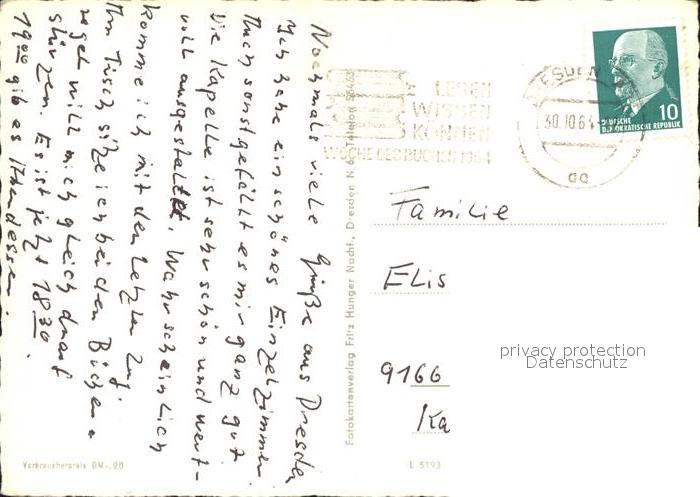 Nochmals viele Grüße aus Dresden
Ich habe ein schönes Einzelzimmer.
Auch sonst gefällt es mir ganz gut.
Die Kapelle ist sehr schön und wert-
voll ausgestaltet. Wahrscheinlich
komme ich mit den letzten Zug.
Im Tisch sitze ich bei den Büchern
will mich gleich drauf
stürzen. Es ist jetzt 18 30.
19 00 gib es Abendessen.
Fotokartenverlag Fritz Hunger Nachf., Dresden N
Verbraucherpreis DM -.20
L 5193
LESEN
WISSEN
KÖNNEN
WOCHE DES BUCHES 1964
DRESDEN
30.10.64
10
DEUTSCHE
DEMOKRATISCHE REPUBLIK
Familie
Elis
9166
Ka
privacy protection
Datenschutz